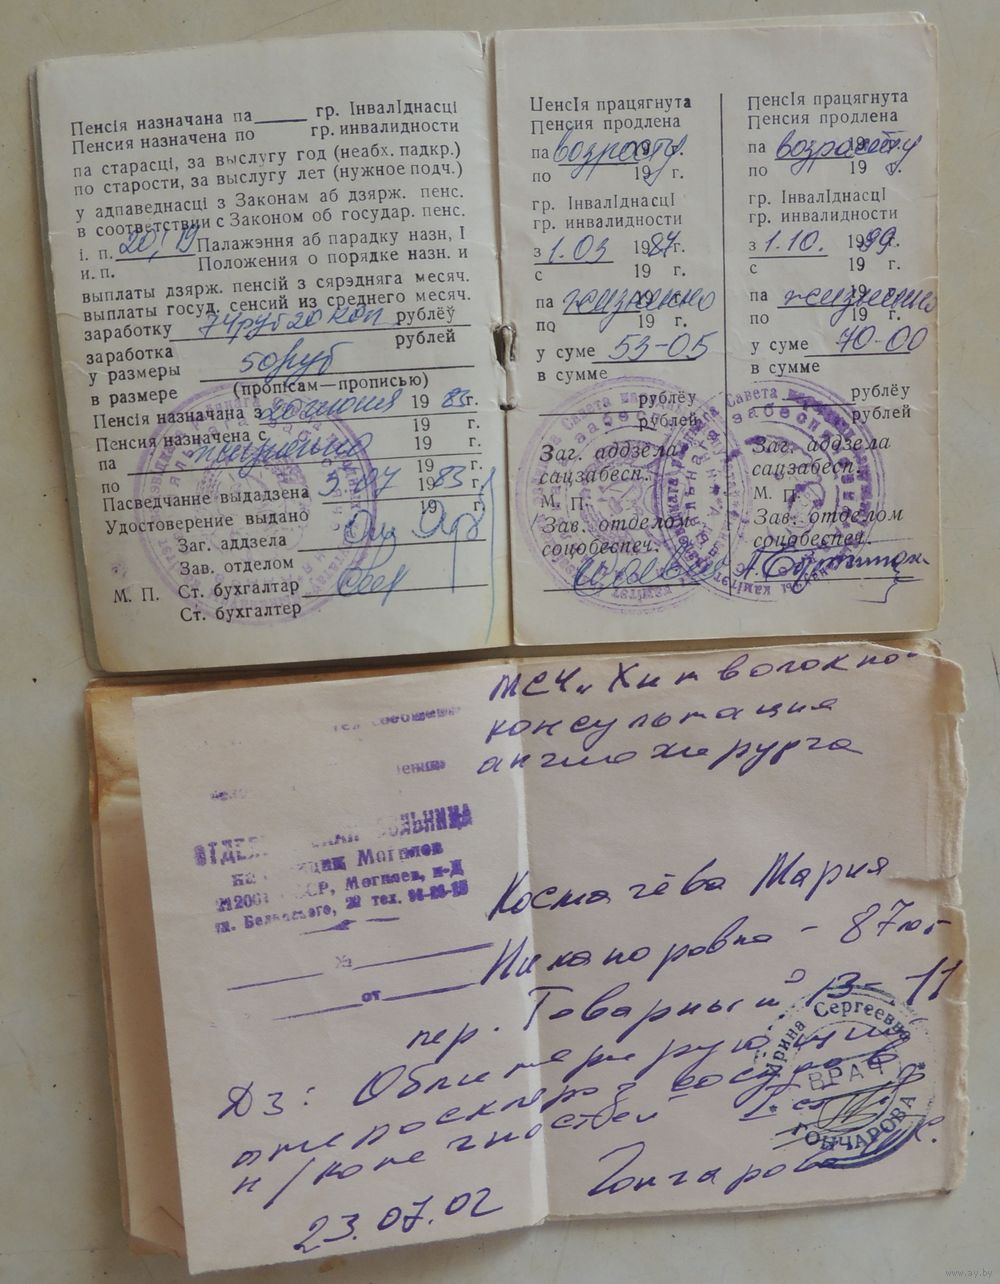 Пенсія назначана па гр. ІнвалІднасці
Пенсия назначена по гр. инвалидности
па старасці, за выслугу год (неабх. падкр.)
по старости, за выслугу лет (нужное подч.)
у адпаведнасці з Законам аб дзярж. пенс.
в соответствии с Законом об государ. пенс.
і. п. 20, 19 Палажэння аб парадку назн, І
и. п. Положения о порядке назн. и
выплаты дзярж. пенсій з сярэдняга месяч.
выплаты госуд, сенсий из среднего месяч.
заработку 74 руб 20 коп рублёў
заработка рублей
у размеры 50 руб
в размере (прописам—прописью)
Пенсія назначана з 20 июня 19 83г.
Пенсия назначена с 19 г.
па пожизненно 19 г.
по 19 г.
Пасведчанне выдадзена 5.07 19 83 г.
Удостоверение выдано 19 г.
Заг. аддзела
Зав. отделом
М. П. Ст. бухгалтар
Ст. бухгалтер
ЦенсІя працягнута
Пенсия продлена
па возрасту 19 г.
по 19 г.
гр. ІнвалІднасці
гр. инвалидности
з 1.03 1987г.
с 19 г.
па пожизненно
по 19 г.
у суме 53-05
в сумме
рублёу
рублей
Заг. аддзела
сацзабесп.
М. П.
Зав. отделом
соцобеспеч.
ПенсІя працягнута
Пенсия продлена
па возрасту
по 19 г.
гр. ІнвалІднасці
гр. инвалидности
з 1.10. 1989г.
с 19 г.
па пожизненно
по 19 г.
у суме 70-00
в сумме
рублёу
рублей
Заг. аддзела
сацзабесп.
М. П.
Зав. отделом
соцобеспеч.
БОЛЬНИЦА
Могилев
212001 Могилев, п-д
ул. Белявского, 29 тел.
№
от
МСЧ „Химволокно"
консультация
ангиохирурга
Космачёва Мария
Никаноровна - 87 лет
пер. Товарный 13- 11
Дз: Облитерирующий
атеросклероз сосудов
н/конечностей
23.07.02 Гончарова
Сергеевна
ВРАЧ
ГОНЧАРОВА
www.ay.by